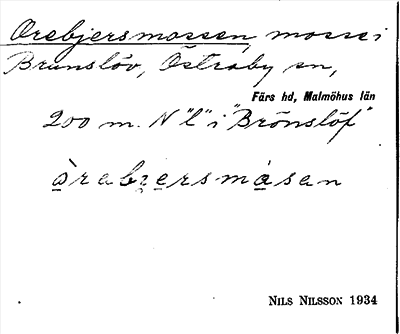 Orebjersmossen, mosse i
Brunslöv, Östraby sn,
Färs hd, Malmöhus län
200 m. N "l" i "Brönslöf"
òrabjersmåsen
NILS NILSSON 1934